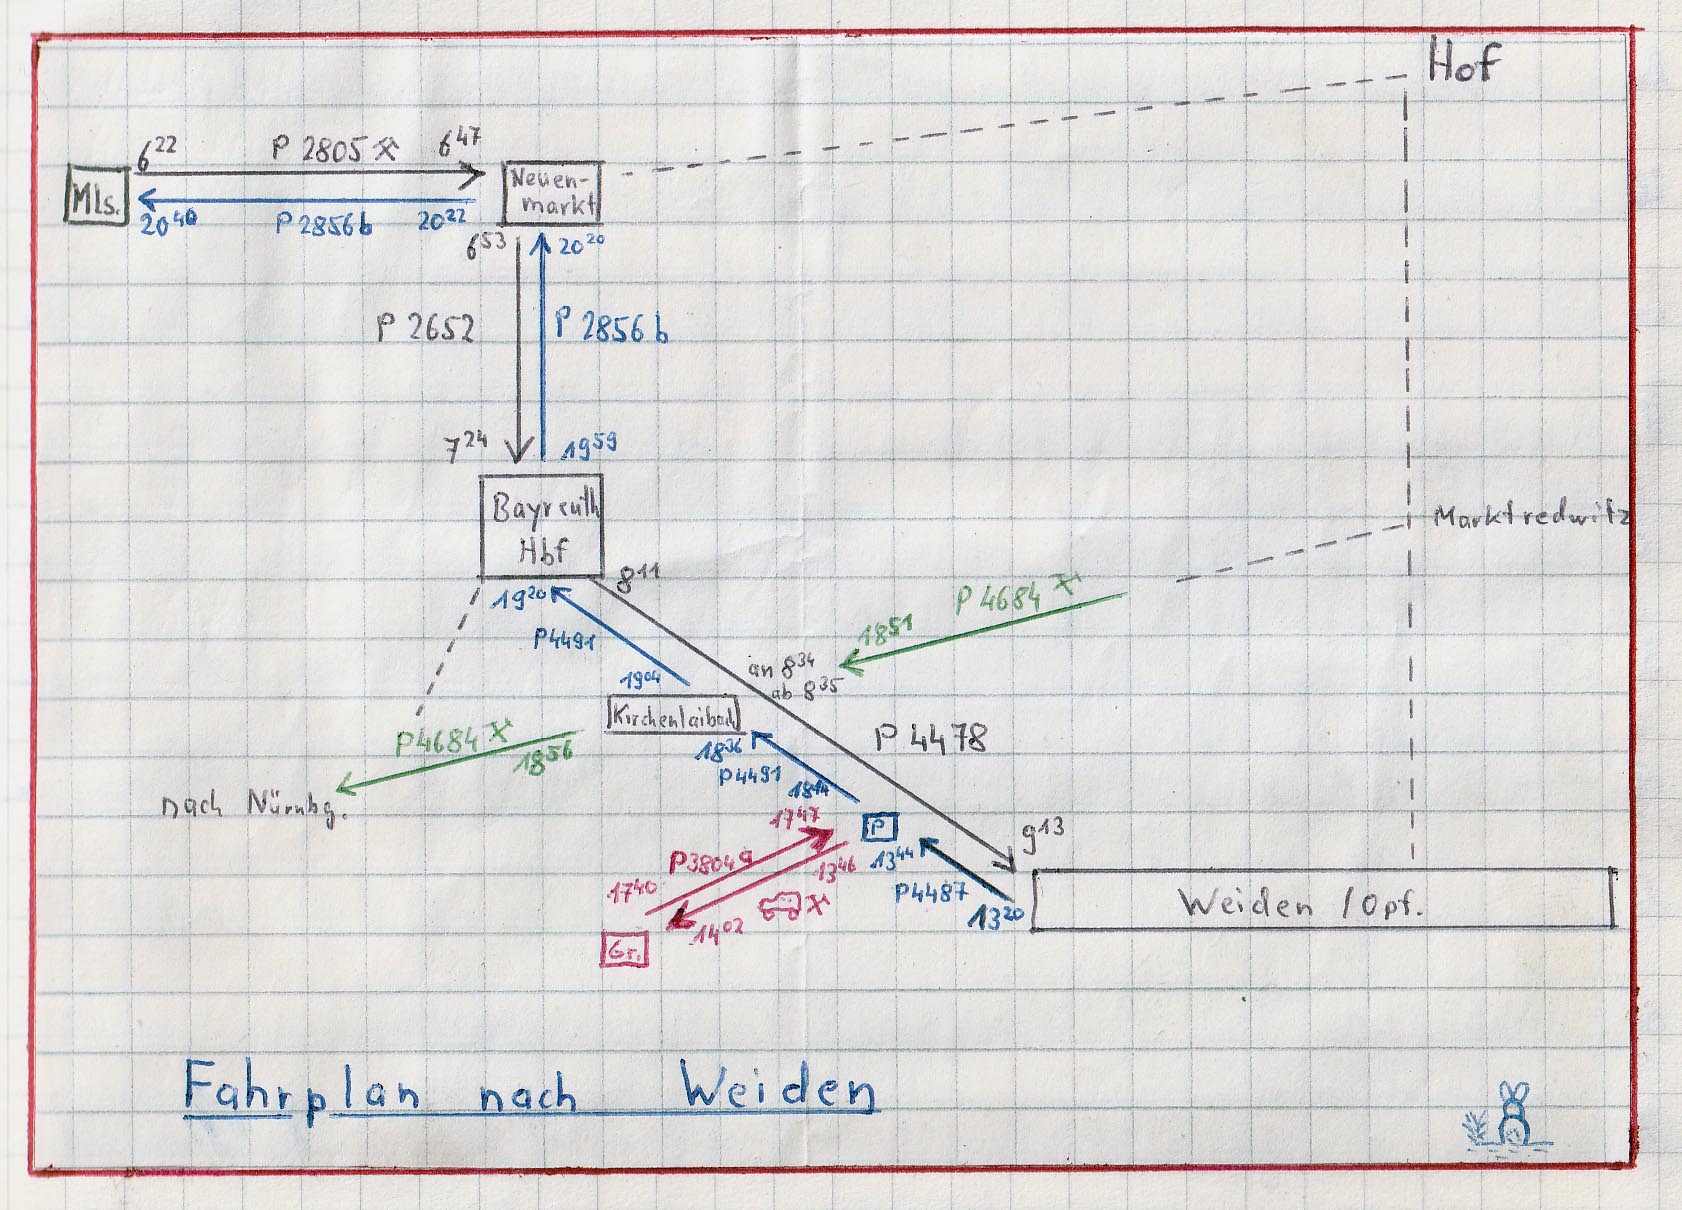 Hof
6²² P 2805 ⚒ 6⁴⁷
Mls.
Neuen-
markt
20⁴⁰ P 2856b 20²²
6⁵³ 20²⁰
P 2652 P 2856 b
7²⁴ 19⁵⁹
Bayreuth
Hbf
Marktredwitz
8¹¹
19²⁰
P4491
P 4684 ⚒
18⁵¹
an 8³⁴
ab 8³⁵
19⁰⁴
Kirchenlaibach
P 4478
P4684 ⚒
18⁵⁶
18³⁶
P4491
18¹⁴
nach Nürnbg.
17⁴⁷
P
9¹³
P3804a
13⁴⁶
13⁴⁴
17⁴⁰
P4487
Weiden / Opf.
13²⁰
14⁰² ⚒
Gr.
Fahrplan nach Weiden